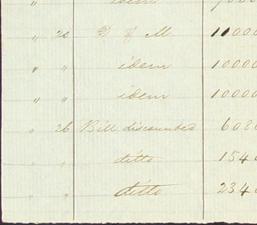 idem
" 20 D & M 11000
" " idem 10000
" " idem 10000
" 26 Bill discounted 608
" " ditto 154
" " ditto 234